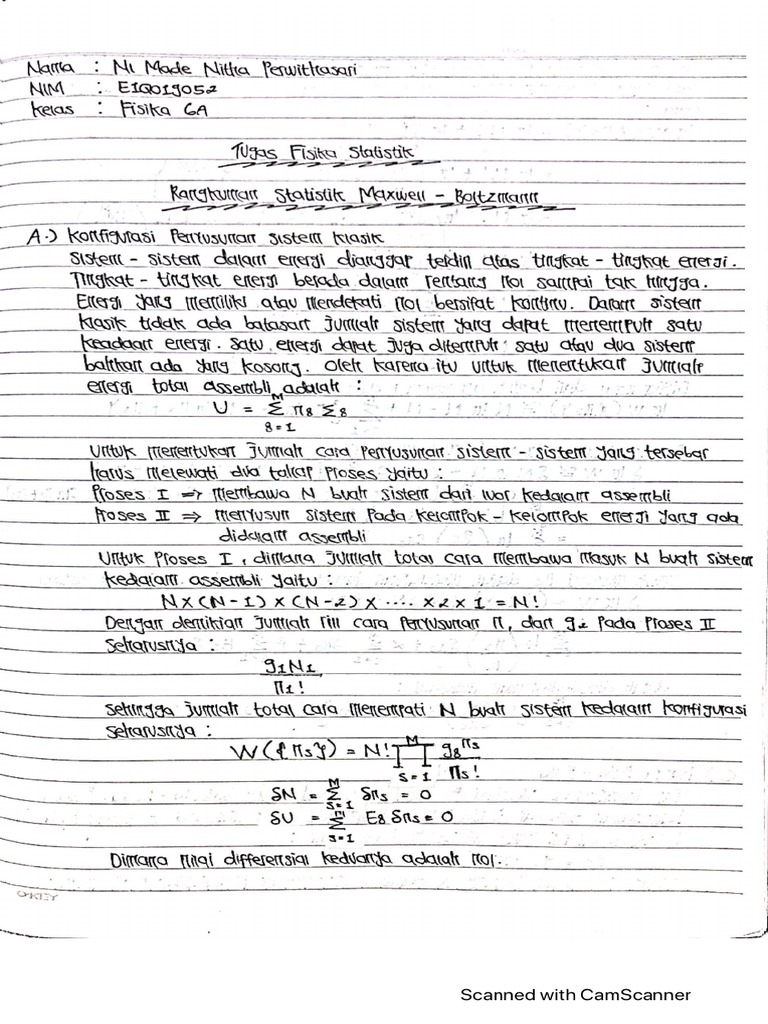 Nama : Ni Made Nitha Perwithasari
NIM : E1Q019052
Kelas : Fisika 6A
Tugas Fisika Statistik
Rangkuman Statistik Maxwell - Boltzmann
A.) Konfigurasi Penyusunan sistem klasik
Sistem - sistem dalam energi dianggap terdiri atas tingkat - tingkat energi.
Tingkat - tingkat energi berada dalam rentang nol sampai tak hingga.
Energi yang memiliki atau mendekati nol bersifat kontinu. Dalam sistem
klasik tidak ada batasan jumlah sistem yang dapat menempuh satu
keadaan energi. Satu energi dapat juga ditempuh satu atau dua sistem
bahkan ada yang kosong. Oleh karena itu untuk menentukan jumlah
energi total assembli adalah :
U = M Σ s=1 ns Σs
Untuk menentukan jumlah cara penyusunan sistem - sistem yang tersebar
harus melewati dua tahap Proses yaitu :
Proses I => membawa N buah sistem dari luar kedalam assembli
Proses II => menyusun sistem Pada kelompok - kelompok energi yang ada
didalam assembli
Untuk Proses I, dimana jumlah total cara membawa masuk N buah sistem
kedalam assembli yaitu :
N x (N-1) x (N-2) x .... x 2 x 1 = N!
Dengan demikian jumlah riil cara penyusunan n, dari g2 Pada Proses II
seharusnya :
g1N1
n1!
Sehingga jumlah total cara menempati N buah sistem kedalam konfigurasi
seharusnya :
W({ns}) = N! M Π s=1 gs^ns / ns!
δN = M Σ s=1 δns = 0
δU = m Σ s=1 Es δns = 0
Dimana nilai differensial keduanya adalah nol.
OKEY
Scanned with CamScanner